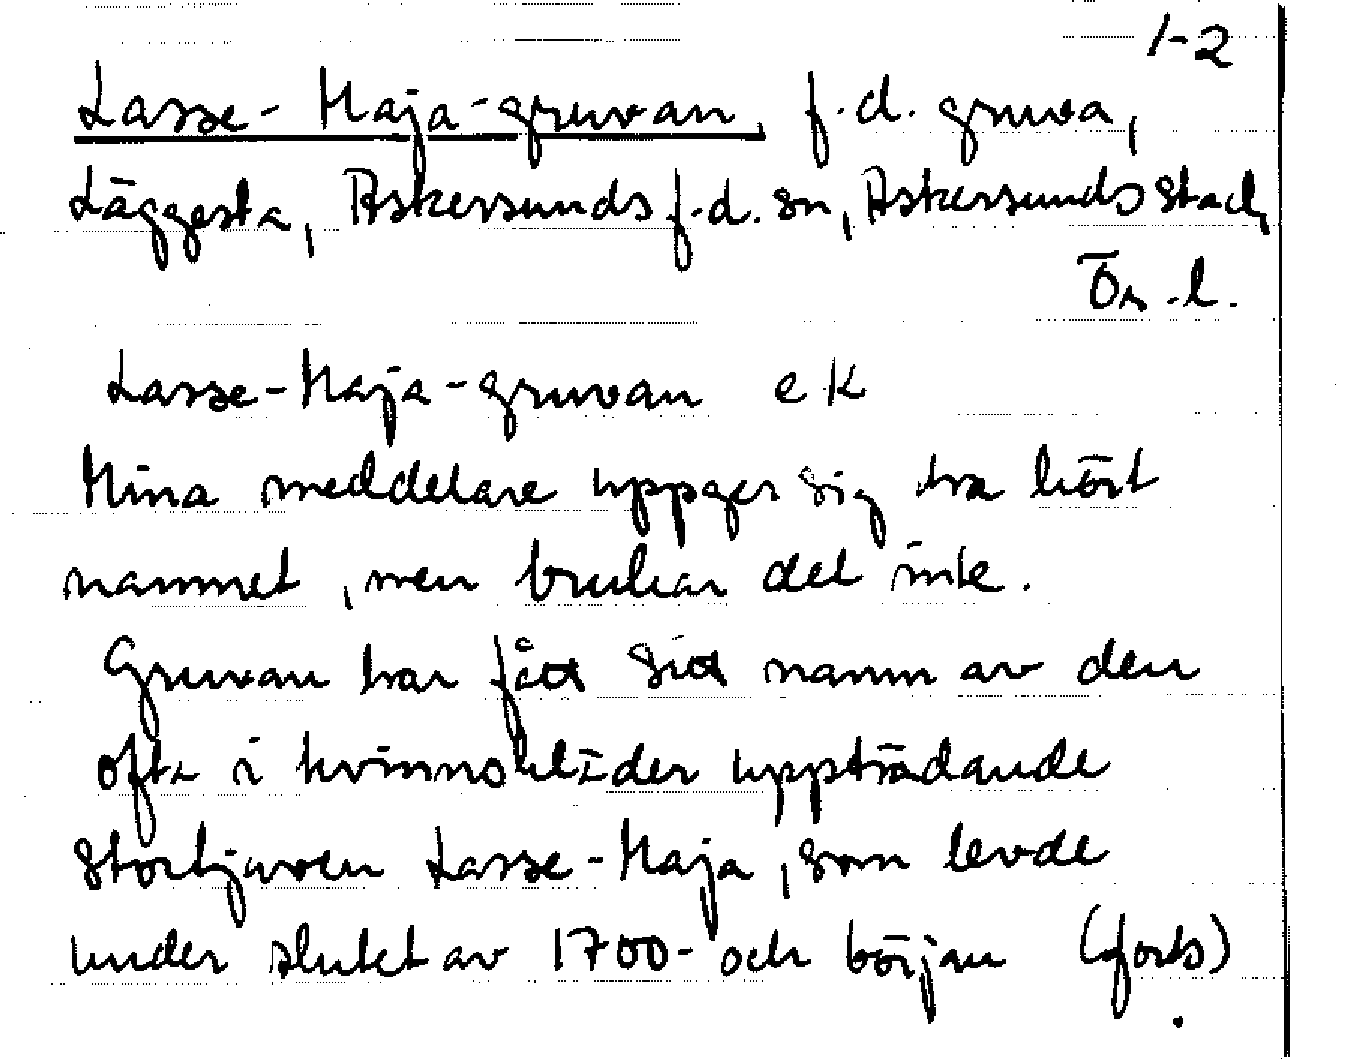 1-2
Lasse-Maja-gruvan, f.d. gruva,
Läggesta, Askersunds f.d. sn, Askersunds stad,
Ör. l.
Lasse-Maja-gruvan ek
Mina meddelare uppger sig ha hört
namnet, men brukar det inte.
Gruvan har fått sitt namn av den
ofta i kvinnokläder uppträdande
stortjuven Lasse-Maja, som levde
under slutet av 1700- och början (forts)